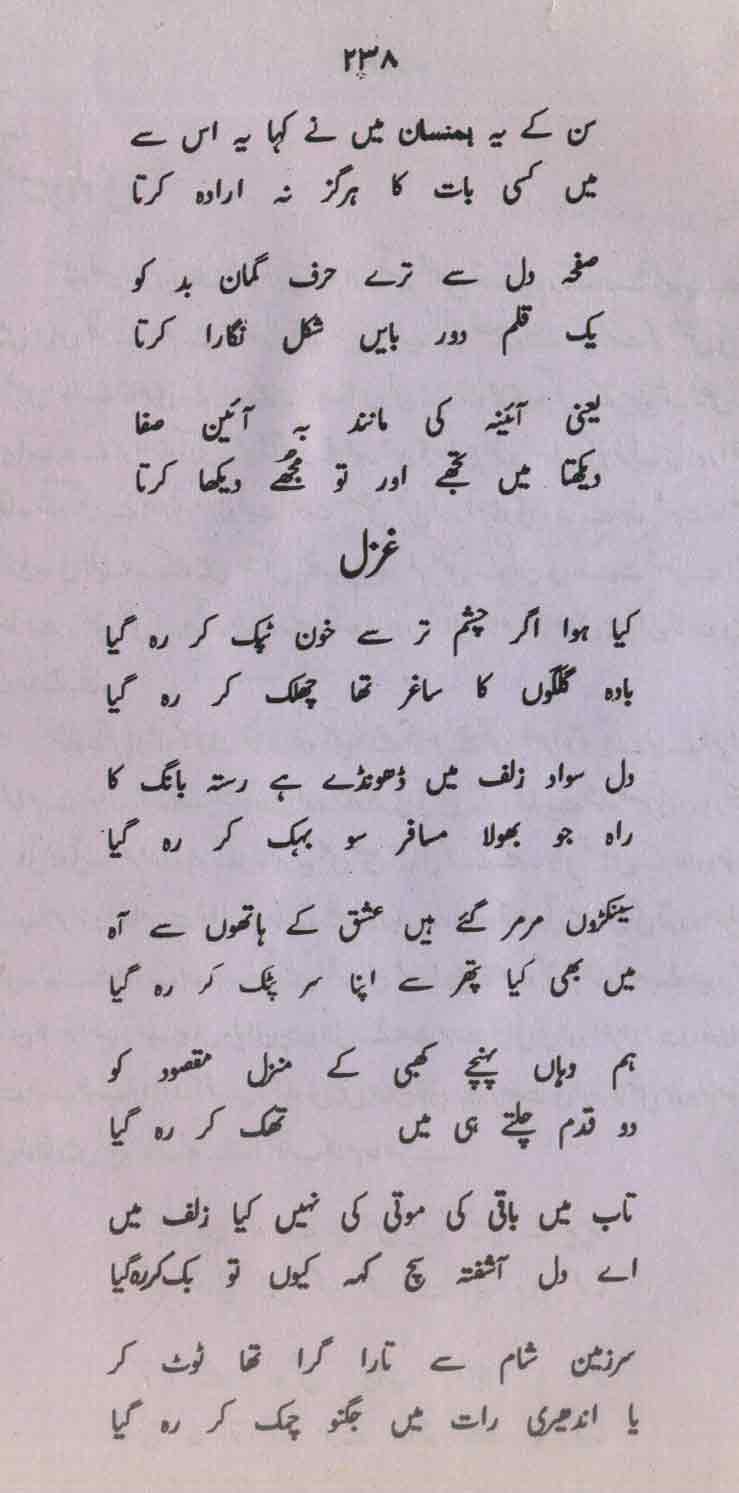 ۲۳۸
سن کے یہ ہمنسان میں نے کہا یہ اس سے
میں کسی بات کا ہرگز نہ ارادہ کرتا
صفحہ دل سے ترے حرف گمان بد کو
یک قلم دور بایں شکل نگارا کرتا
یعنی آئینہ کی مانند بہ آئین صفا
دیکھتا میں تجھے اور تو مجھے دیکھا کرتا
غزل
کیا ہوا اگر چشم تر سے خون ٹپک کر رہ گیا
بادہ گلگوں کا ساغر تھا چھلک کر رہ گیا
دل سواد زلف میں ڈھونڈے ہے رستہ بانگ کا
راہ جو بھولا مسافر سو بہک کر رہ گیا
سینکڑوں مرمر گئے ہیں عشق کے ہاتھوں سے آہ
میں بھی کیا پتھر سے اپنا سر پٹک کر رہ گیا
ہم وہاں پہنچے کبھی کے منزل مقصود کو
دو قدم چلتے ہی میں تھک کر رہ گیا
تاب میں باقی کی موتی کی نہیں کیا زلف میں
اے دل آشفتہ سچ کہہ کیوں تو بک کر رہ گیا
سرزمین شام سے تارا گرا تھا ٹوٹ کر
یا اندھیری رات میں جگنو چمک کر رہ گیا